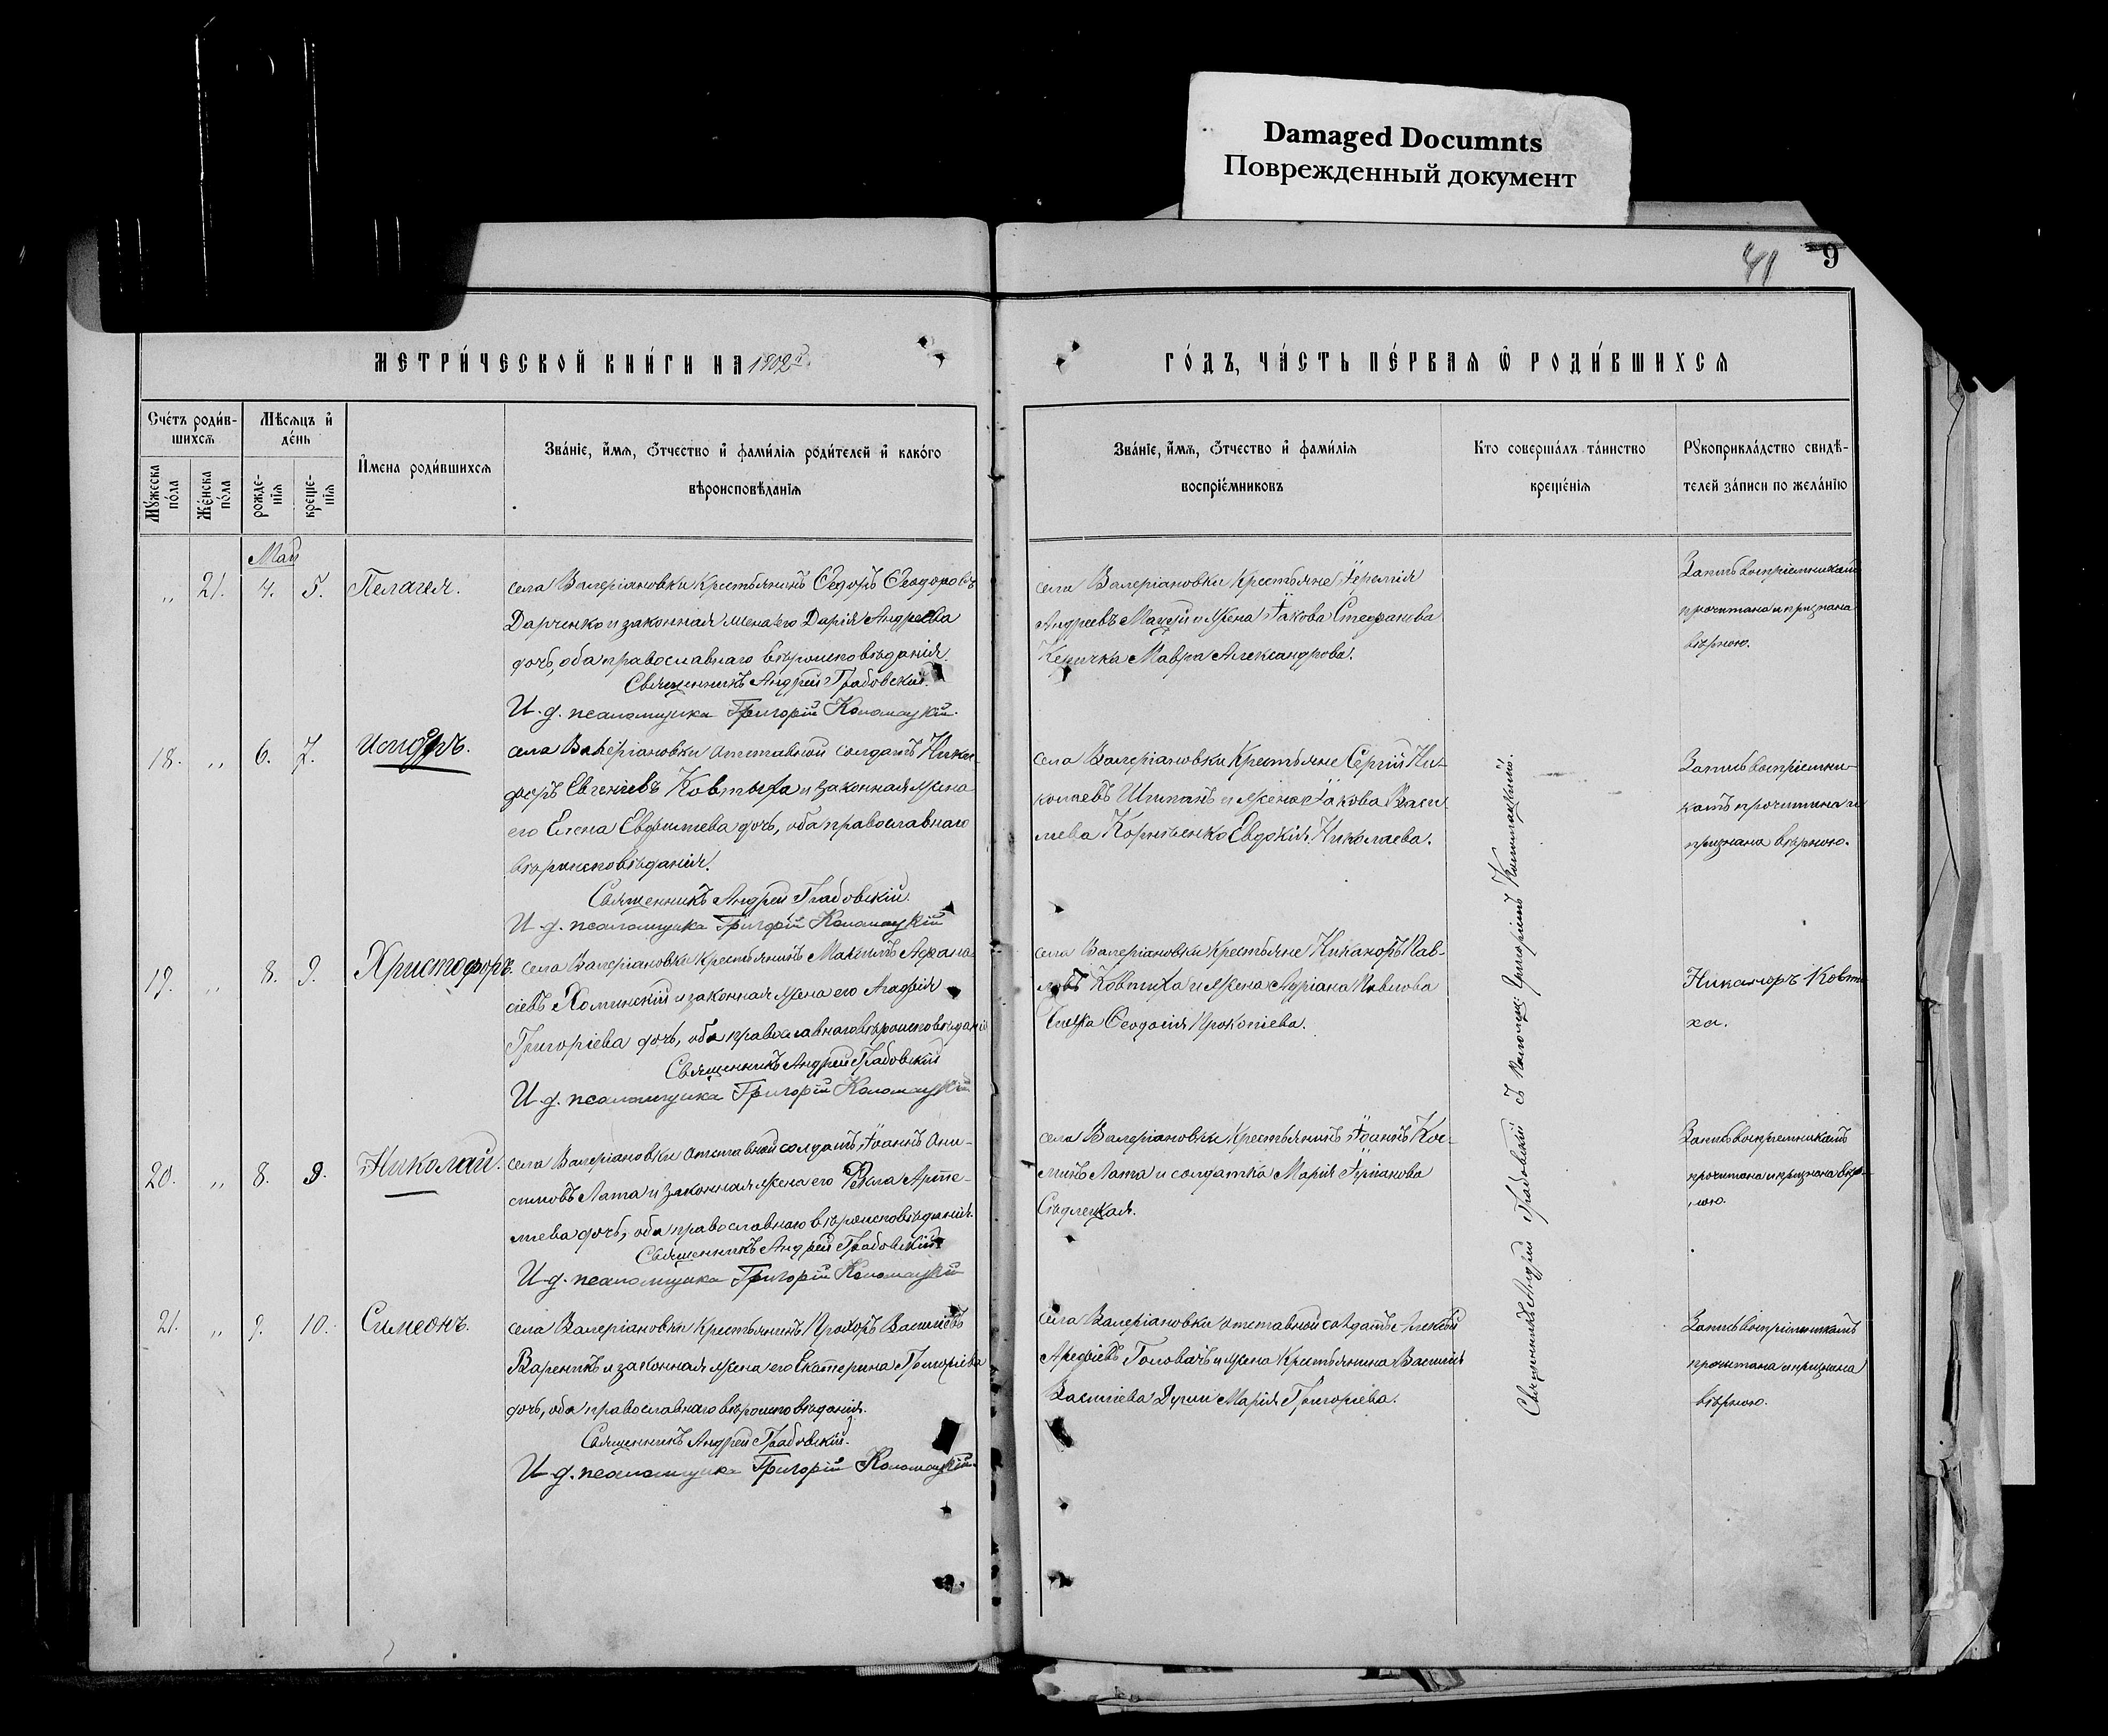 Damaged Documnts
Поврежденный документ
41 9
МЕТРИ́ЧЕСКОЙ КНИ́ГИ НА 1902 г.
ГО́ДЪ, ЧА́СТЬ ПЕ́РВАЯ Ѡ РОДИ́ВШИХСЯ
Счетъ роди́в-
шихсѧ
Мѣсѧцъ и
де́нь
Мꙋжеска по́ла
Же́нска по́ла
рожде-
нія
креще-
нія
Имена роди́вшихсѧ
Зва́ніе, и́мѧ, ѻтчество и фами́лія роди́телей и како́го
вѣроисповѣданія
Зва́ніе, и́мѧ, ѻтчество и фами́лія
воспріе́мниковъ
Кто соверша́лъ та́инство
креще́нія
Рꙋкоприкла́дство свидѣ-
телей за́писи по жела́нію
Май
„ 21. 4. 5. Пелагея.
села Валеріановки крестьянинъ Ѳедоръ Ѳеодоровъ
Дарченко и законная жена его Дарія Андреева
дочь, оба православнаго вѣроисповѣданія.
Священникъ Андрей Грабовскій.
И. д. псаломщика Григорій Коломацкій.
села Валеріановки крестьяне Іеремія
Андреевъ и жена Іакова Стефанова
Мавра Александрова.
Запись воспріемникамъ
прочитана и признана
вѣрною.
18. „ 6. 7. Исидоръ.
села Валеріановки отставной солдатъ Ники-
форъ Евгеніевъ Ковтыха и законная жена
его Елена дочь, оба православнаго
вѣроисповѣданія.
Священникъ Андрей Грабовскій.
И. д. псаломщика Григорій Коломацкій
села Валеріановки крестьяне Сергій Ни-
колаевъ и жена Іакова Васи-
лева Корніенко Евдокія Николаева.
Запись воспріемни-
камъ прочитана и
признана вѣрною.
19. „ 8. 9. Христофоръ.
села Валеріановки крестьянинъ Максимъ Афана-
сіевъ Хоминскій и законная жена его Агафія
Григоріева дочь, оба православнаго вѣроисповѣданія
Священникъ Андрей Грабовскій
И. д. псаломщика Григорій Коломацкій
села Валеріановки крестьяне Никаноръ Пав-
ловъ Ковтиха и жена Адріана Павлова
Ѳеодосія Прокопіева.
Никаноръ Ковти
ха.
20. „ 8. 9. Николай.
села Валеріановки отставной солдатъ Іоаннъ Они-
симовъ Лата и законная жена его Ѳекла Арте-
міева дочь, оба православнаго вѣроисповѣданія.
Священникъ Андрей Грабовскій
И. д. псаломщика Григорій Коломацкій
села Валеріановки крестьянинъ Іоаннъ Кос-
минъ Лата и солдатка Марія
Сѣдлецкая.
Запись воспріемникамъ
прочитана и признана вѣр-
ною.
21. „ 9. 10. Симеонъ.
села Валеріановки крестьянинъ Прохоръ Василіевъ
Вареникъ и законная жена его Екатерина Григоріева
дочь, оба православнаго вѣроисповѣданія.
Священникъ Андрей Грабовскій.
И. д. псаломщика Григорій Коломацкій.
села Валеріановки отставной солдатъ Алексѣй
Арефіевъ Головачъ и жена крестьянина Василія
Василіева Марія Григоріева.
Запись воспріемникамъ
прочитана и признана
вѣрною.
Священникъ Андрей Грабовскій съ псаломщ. Григоріемъ Коломацкимъ.